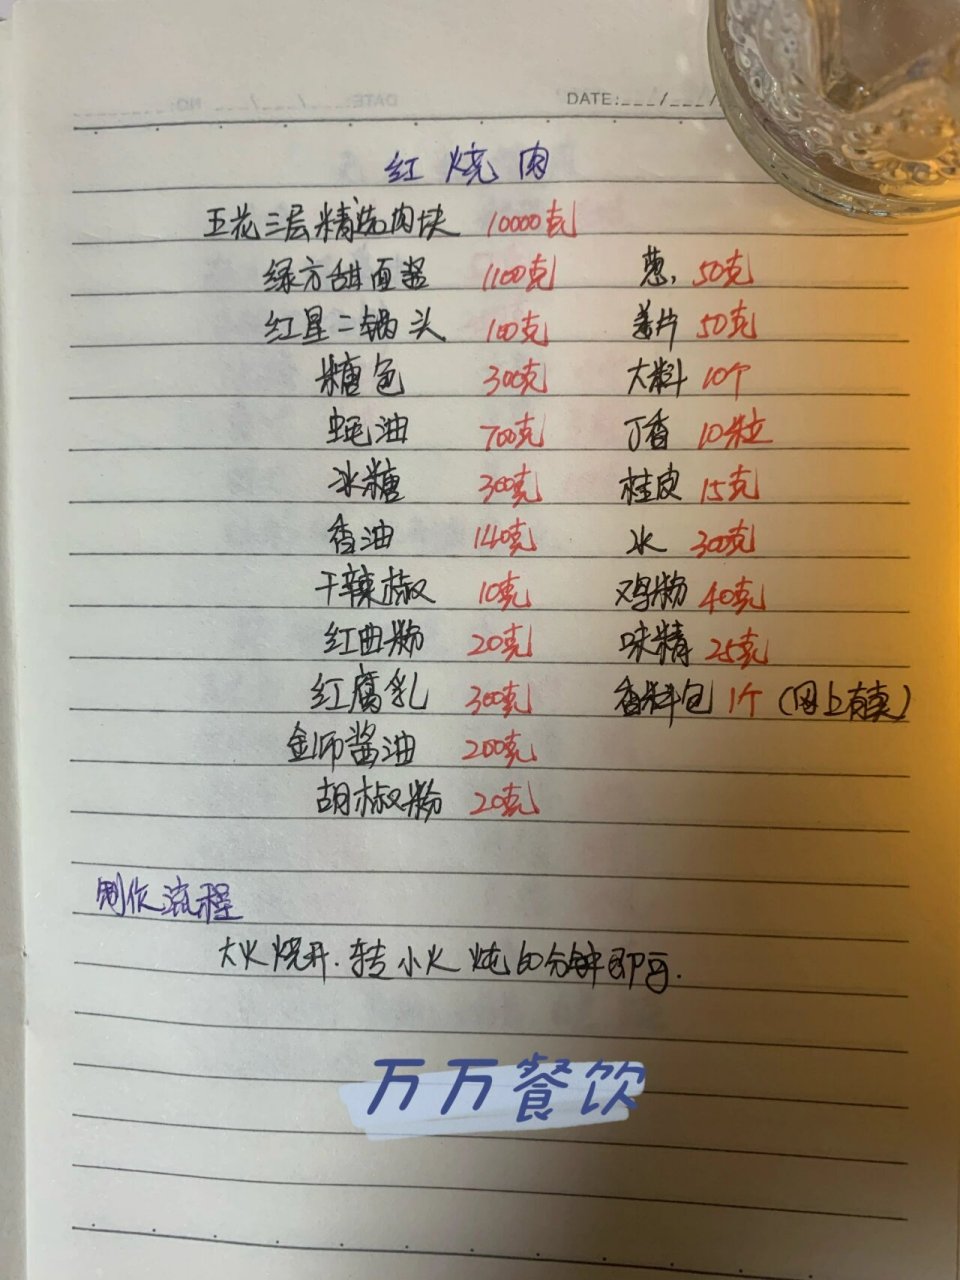 DATE:___/___/
红烧肉
五花三层精选肉块 10000克
绿方甜面酱 1100克 葱, 50克
红星二锅头 100克 姜片 50克
糖色 300克 大料 10个
蚝油 700克 丁香 10粒
冰糖 300克 桂皮 15克
香油 140克 水 300克
干辣椒 10克 鸡粉 40克
红曲粉 20克 味精 25克
红腐乳 300克 香料包 1个 (网上有卖)
金师酱油 200克
胡椒粉 20克
制作流程
大火烧开.转小火炖60分钟即可.
万万餐饮